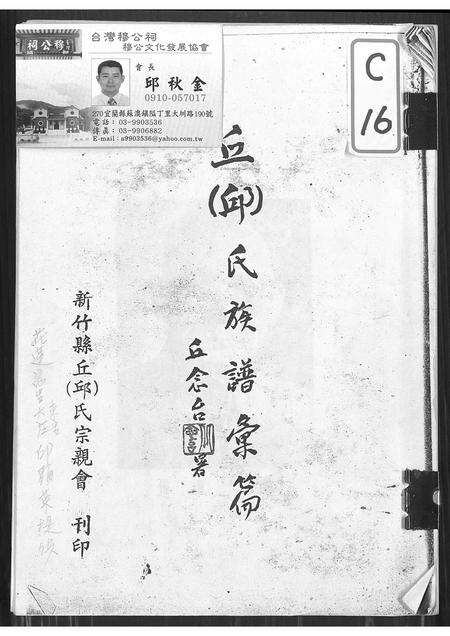 穆公祠
台灣穆公祠
穆公文化發展協會
會長
邱秋金
0910-057017
270宜蘭縣蘇澳鎮隘丁里大圳路190號
電話：03-9903536
傳真：03-9906882
E-mail：a9903536@yahoo.com.tw
C
16
丘(邱)氏族譜彙篇
丘念台
署
新竹縣丘(邱)氏宗親會 刊印